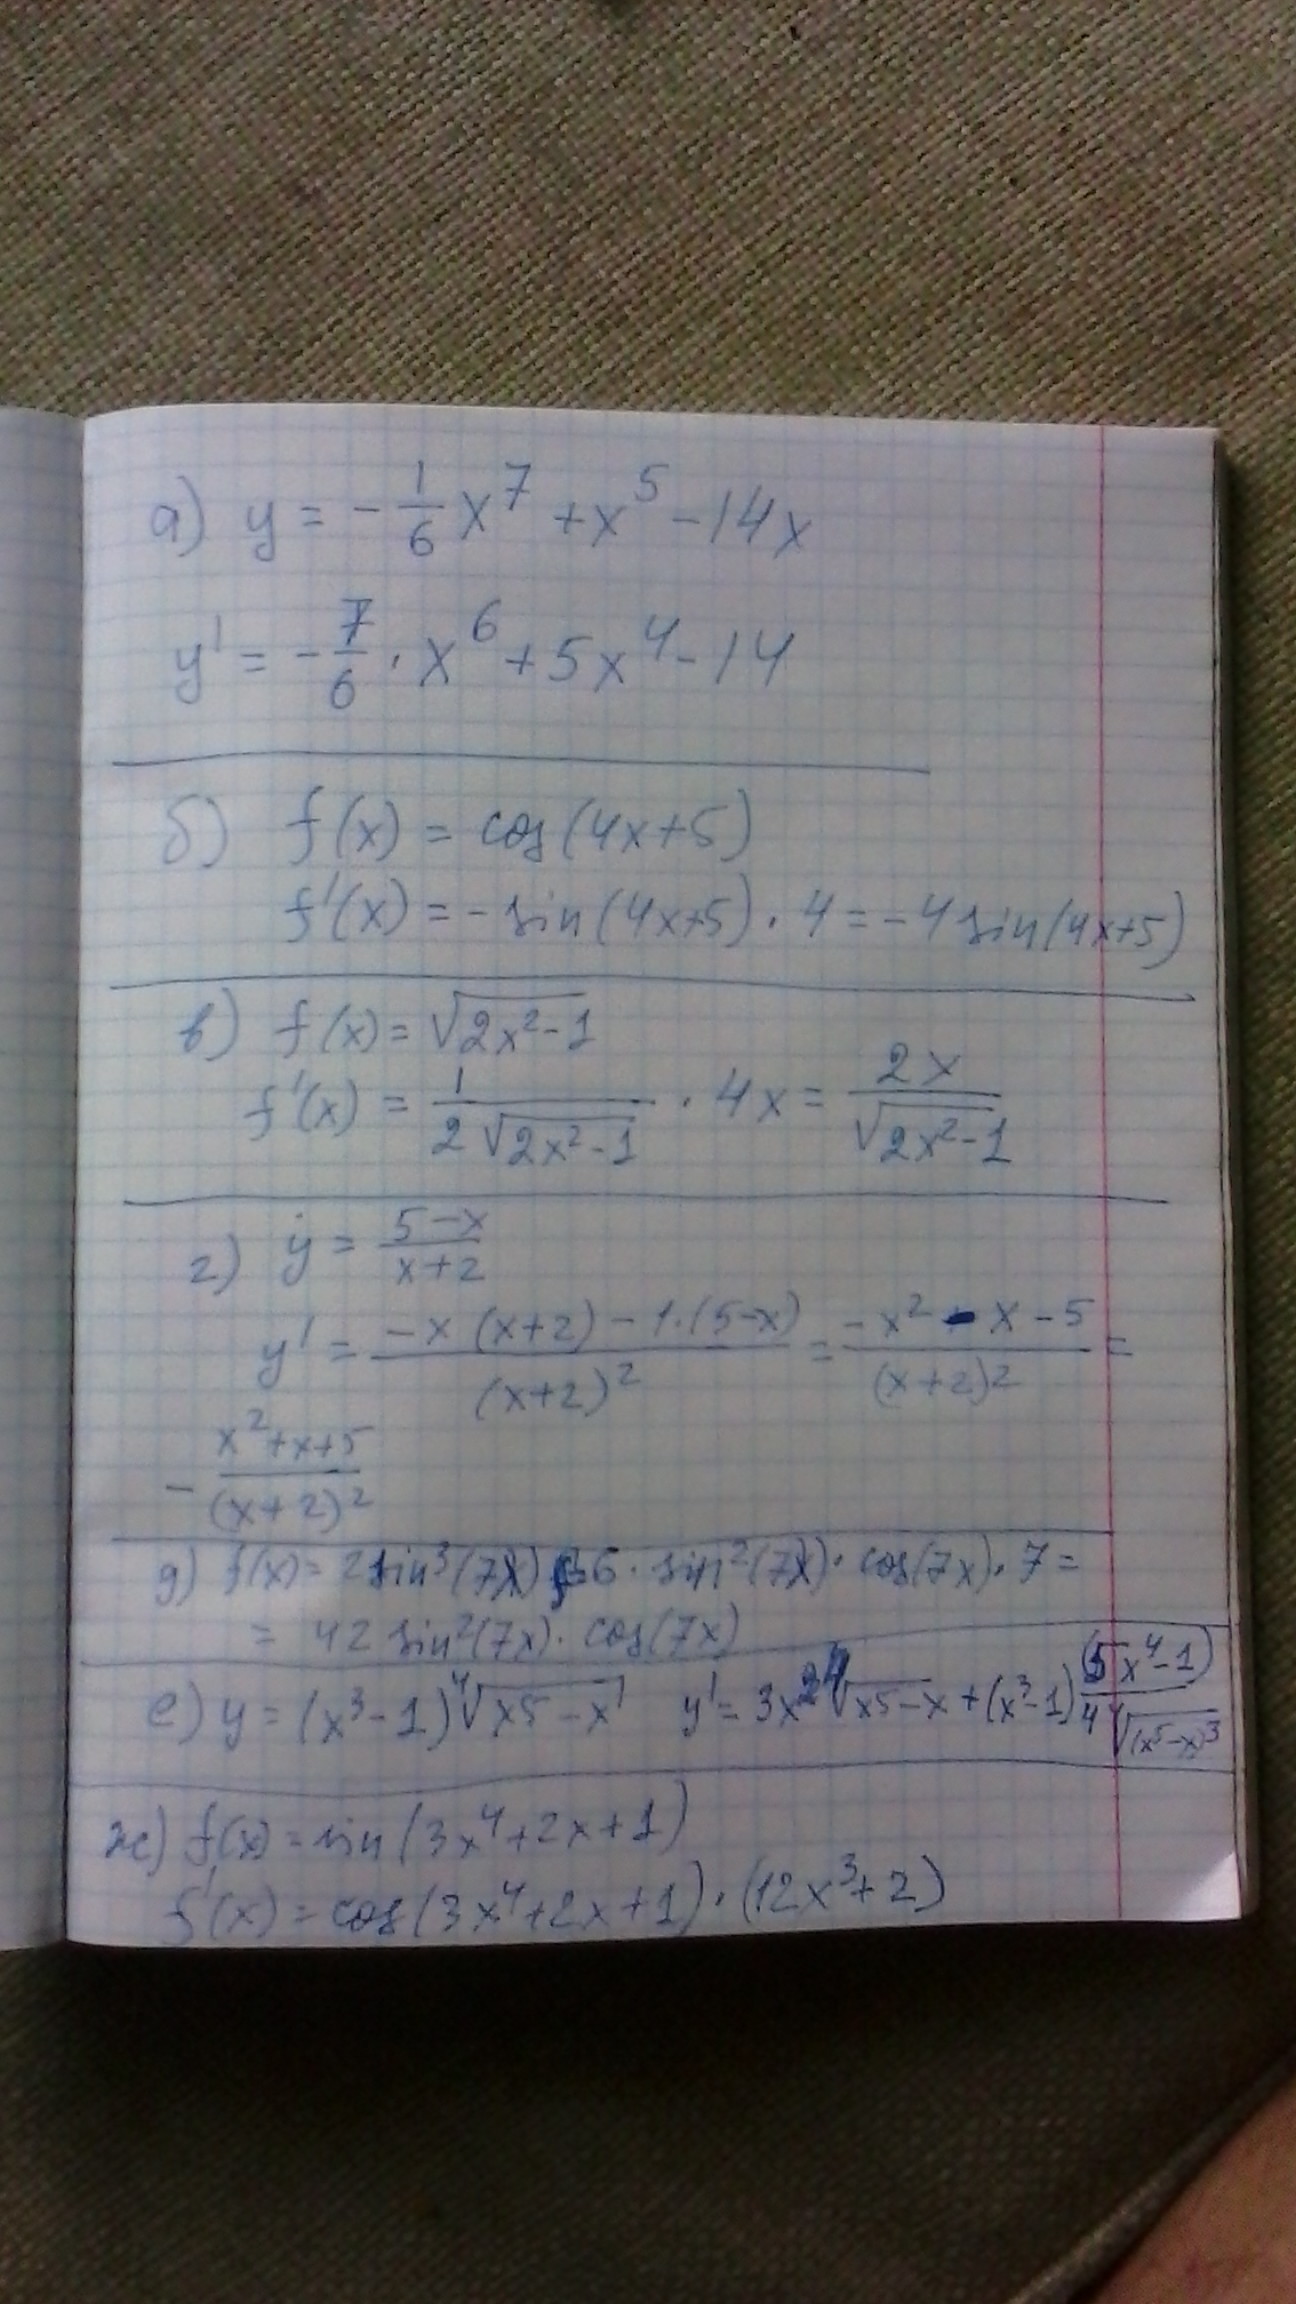 а) y = -1/6 x^7 + x^5 - 14x
y' = -7/6 · x^6 + 5x^4 - 14
б) f(x) = cos(4x+5)
f'(x) = - sin(4x+5) · 4 = -4 sin(4x+5)
в) f(x) = √(2x²-1)
f'(x) = 1/(2√(2x²-1)) · 4x = 2x/√(2x²-1)
г) y = (5-x)/(x+2)
y' = (-x (x+2) - 1·(5-x))/(x+2)² = (-x² - x - 5)/(x+2)² =
- (x²+x+5)/(x+2)²
д) f(x) = 2 sin³(7x) 6 · sin²(7x) · cos(7x) · 7 =
= 42 sin²(7x) · cos(7x)
е) y = (x³-1) ⁴√(x5-x) y' = 3x² ⁴√(x5-x) + (x³-1) (5x⁴-1)/(4 ⁴√(x⁵-x)³)
ж) f(x) = sin(3x⁴+2x+1)
f'(x) = cos(3x⁴+2x+1) · (12x³+2)